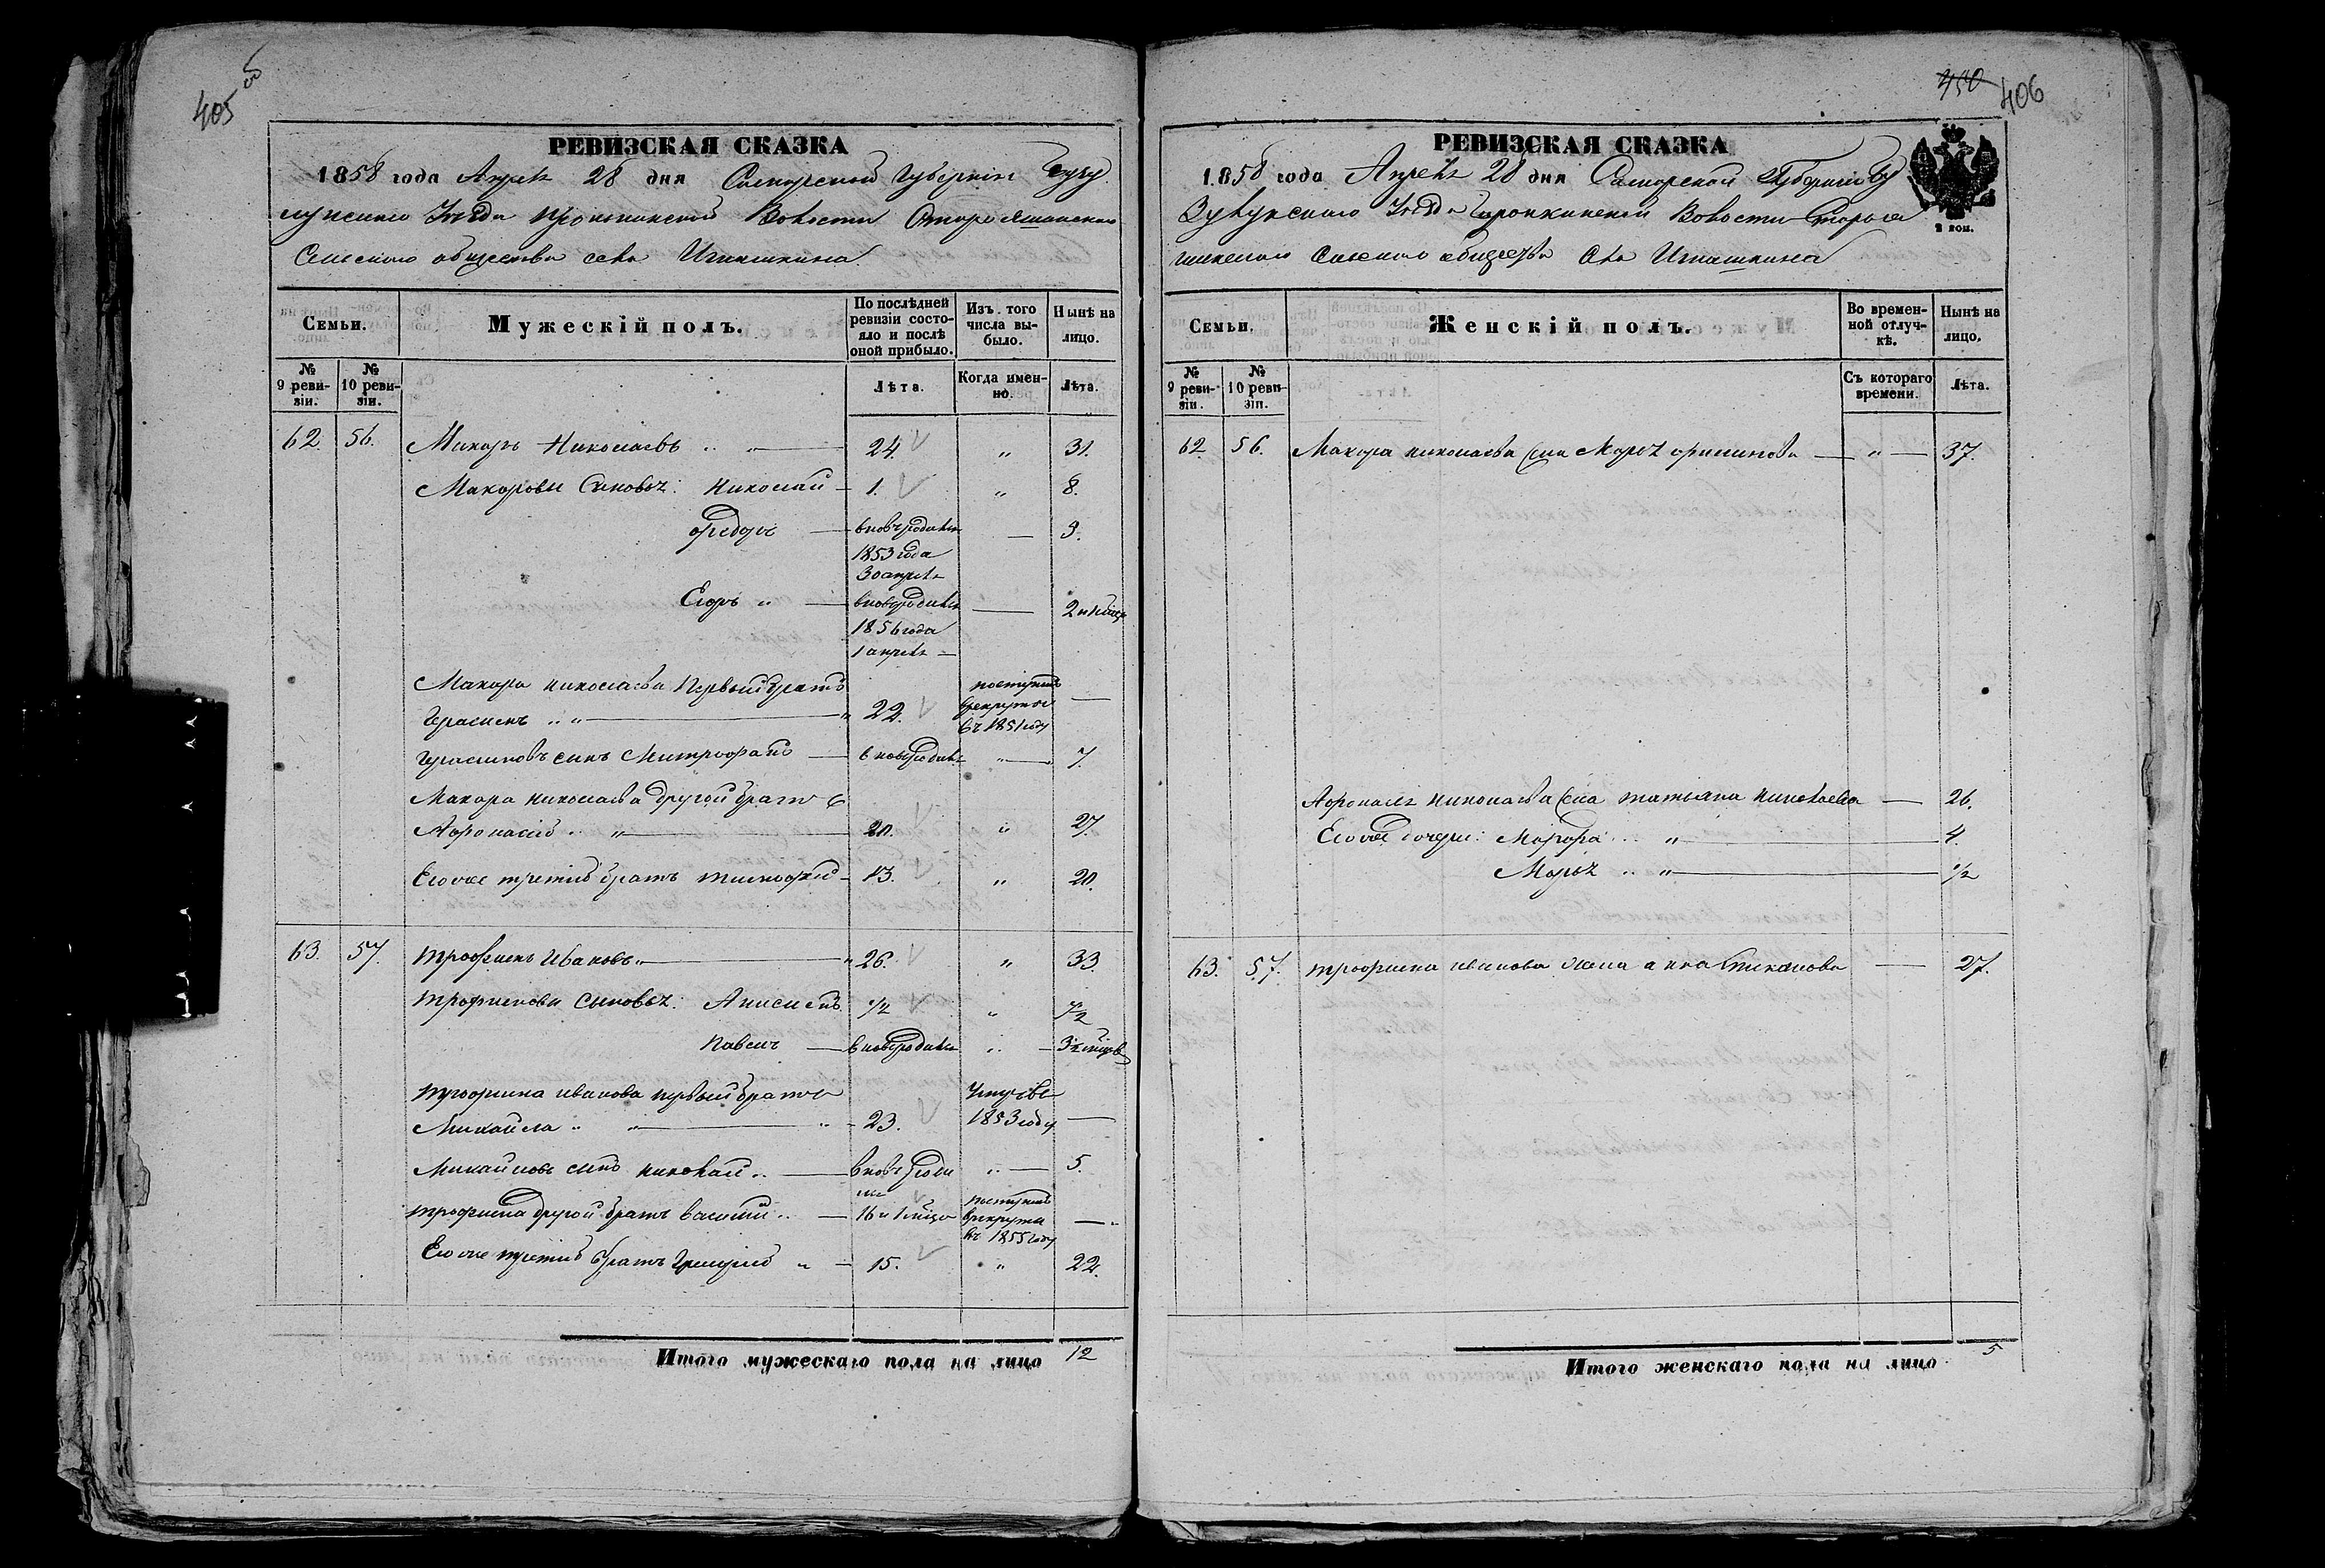 405 об
РЕВИЗСКАЯ СКАЗКА
1858 года Апреля 28 дня Самарской Губернии Бугу
Уезда Волости
Селскаго общества села
Семьи.
Мужескій полъ.
По послѣдней ревизіи состояло и послѣ оной прибыло.
Изъ того числа выбыло.
Нынѣ на лицо.
№ 9 ревизіи.
№ 10 ревизіи.
Лѣта.
Когда именно.
Лѣта.
62. 56. Макаръ Николаевъ 24. " 31.
Макаровы Сыновья: Николай 1. " 8.
Федоръ вновь родился — 9.
1853 года
30 апреля
Егоръ " вновь родился — 2 и 1 месяц
1856 года
1 апреля
Макара николаева Первый братъ поступилъ
Герасимъ 22. в рекруты —
въ 1851 году
Герасимовъ сынъ Митрофанъ вновь родился " 7.
Макара николаева другой братъ
Афонасий " 20. " 27.
Его же третий братъ тимофей 13. " 20.
63. 57. трофимъ Ивановъ 26. " 33.
трофимовы сыновья: Анисимъ 1/2 " 7 1/2
Павелъ вновь родился
трофима иванова первый братъ умре въ
Михайла " 23. 1853 году —
Михайловъ сынъ николай вновь роди " 5.
лся поступилъ
трофима другой братъ василий 16 и 1 месяц в рекруты —
въ 1855 году
Его же третий братъ Григорий " 15. " 22.
Итого мужескаго пола на лицо 12
450 406
РЕВИЗСКАЯ СКАЗКА
2 коп.
1858 года Апрель 28 дня Самарской Губернии Бу
Уезда Волости
общества
Семьи.
Женскій полъ.
Во временной отлучкѣ.
Нынѣ на лицо.
№ 9 ревизіи.
№ 10 ревизіи.
Съ котораго времени.
Лѣта.
62. 56. Макара николаева жена Марья — " — 37.
Афонасья николаева жена татьяна николаева — 26.
Его же дочери: " 4.
Марья " 1/2
63. 57. трофима иванова жена анна — 27.
Итого женскаго пола на лицо 5